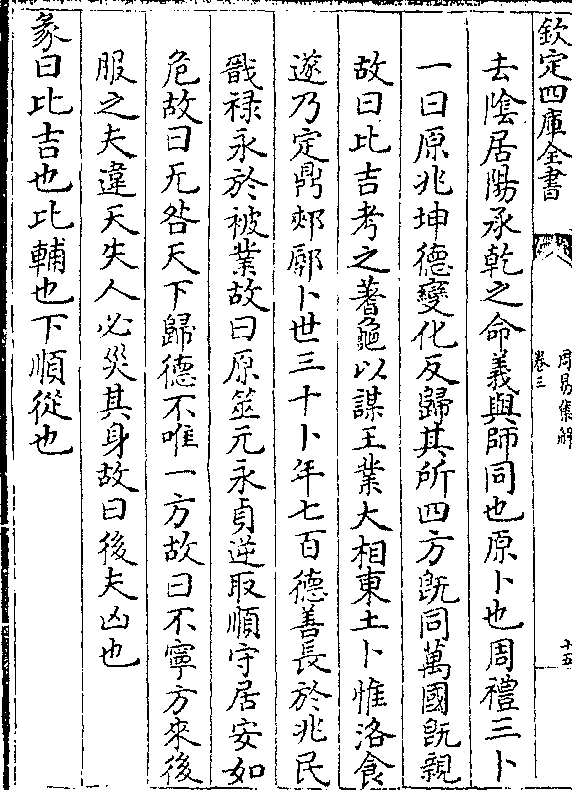 欽定四庫全書
周易集解
卷三
十五
去陰居陽承乾之命義與師同也原卜也周禮三卜
一曰原兆坤德變化反歸其所四方既同萬國既親
故曰比吉考之蓍龜以謀王業大相東土卜惟洛食
遂乃定鼎郟鄏卜世三十卜年七百德善長於兆民
戩禄永於被業故曰原筮元永貞逆取順守居安如
危故曰无咎天下歸德不唯一方故曰不寧方來後
服之夫違天失人必災其身故曰後夫凶也
彖曰比吉也比輔也下順從也